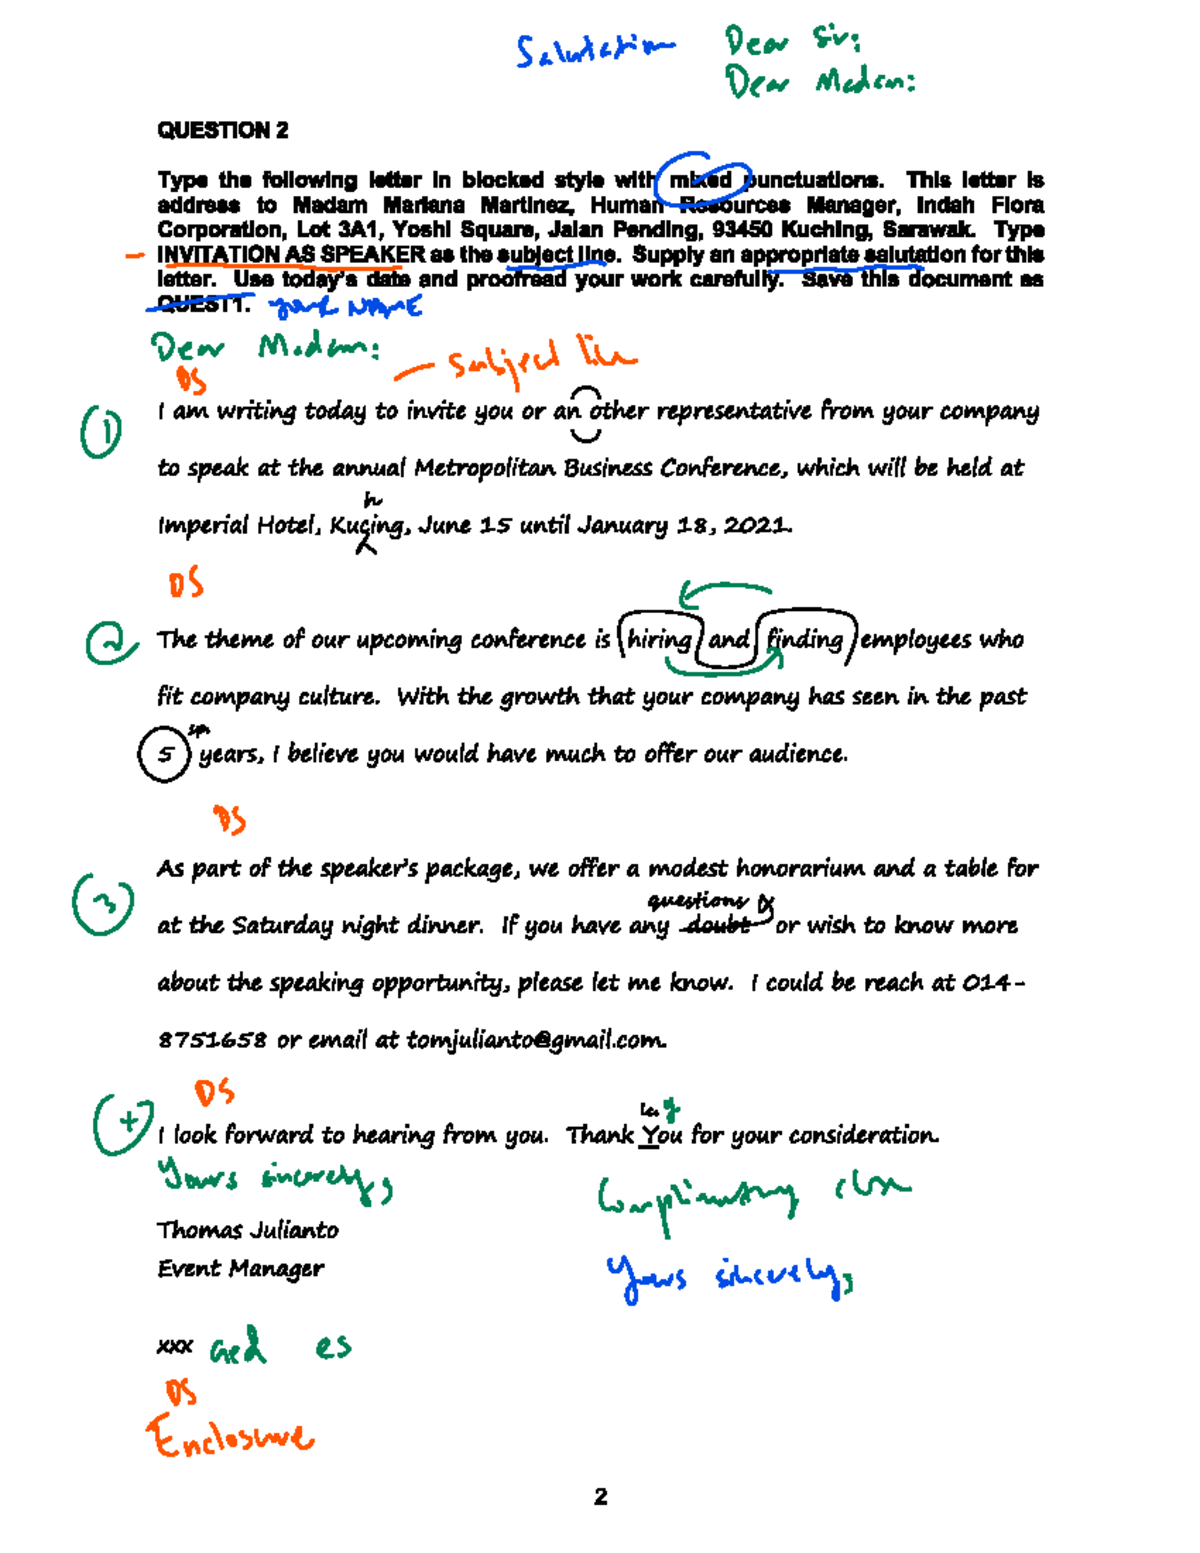 Salutation Dear Sir:
Dear Madam:
QUESTION 2
Type the following letter in blocked style with mixed punctuations. This letter is
address to Madam Mariana Martinez, Human Resources Manager, Indah Flora
Corporation, Lot 3A1, Yoshi Square, Jalan Pending, 93450 Kuching, Sarawak. Type
INVITATION AS SPEAKER as the subject line. Supply an appropriate salutation for this
letter. Use today's date and proofread your work carefully. Save this document as
QUEST1. your NAME
Dear Madam:
- Subject line
DS
1 I am writing today to invite you or an other representative from your company
to speak at the annual Metropolitan Business Conference, which will be held at
h
Imperial Hotel, Kucing, June 15 until January 18, 2021.
DS
2 The theme of our upcoming conference is hiring and finding employees who
fit company culture. With the growth that your company has seen in the past
sp
5 years, I believe you would have much to offer our audience.
DS
3 As part of the speaker's package, we offer a modest honorarium and a table for
questions
at the Saturday night dinner. If you have any doubt or wish to know more
about the speaking opportunity, please let me know. I could be reach at 014-
8751658 or email at tomjulianto@gmail.com.
DS
lc y
4 I look forward to hearing from you. Thank You for your consideration.
Yours sincerely,
Complimentary close
Thomas Julianto
Event Manager
Yours sincerely,
xxx es
DS
Enclosure
2